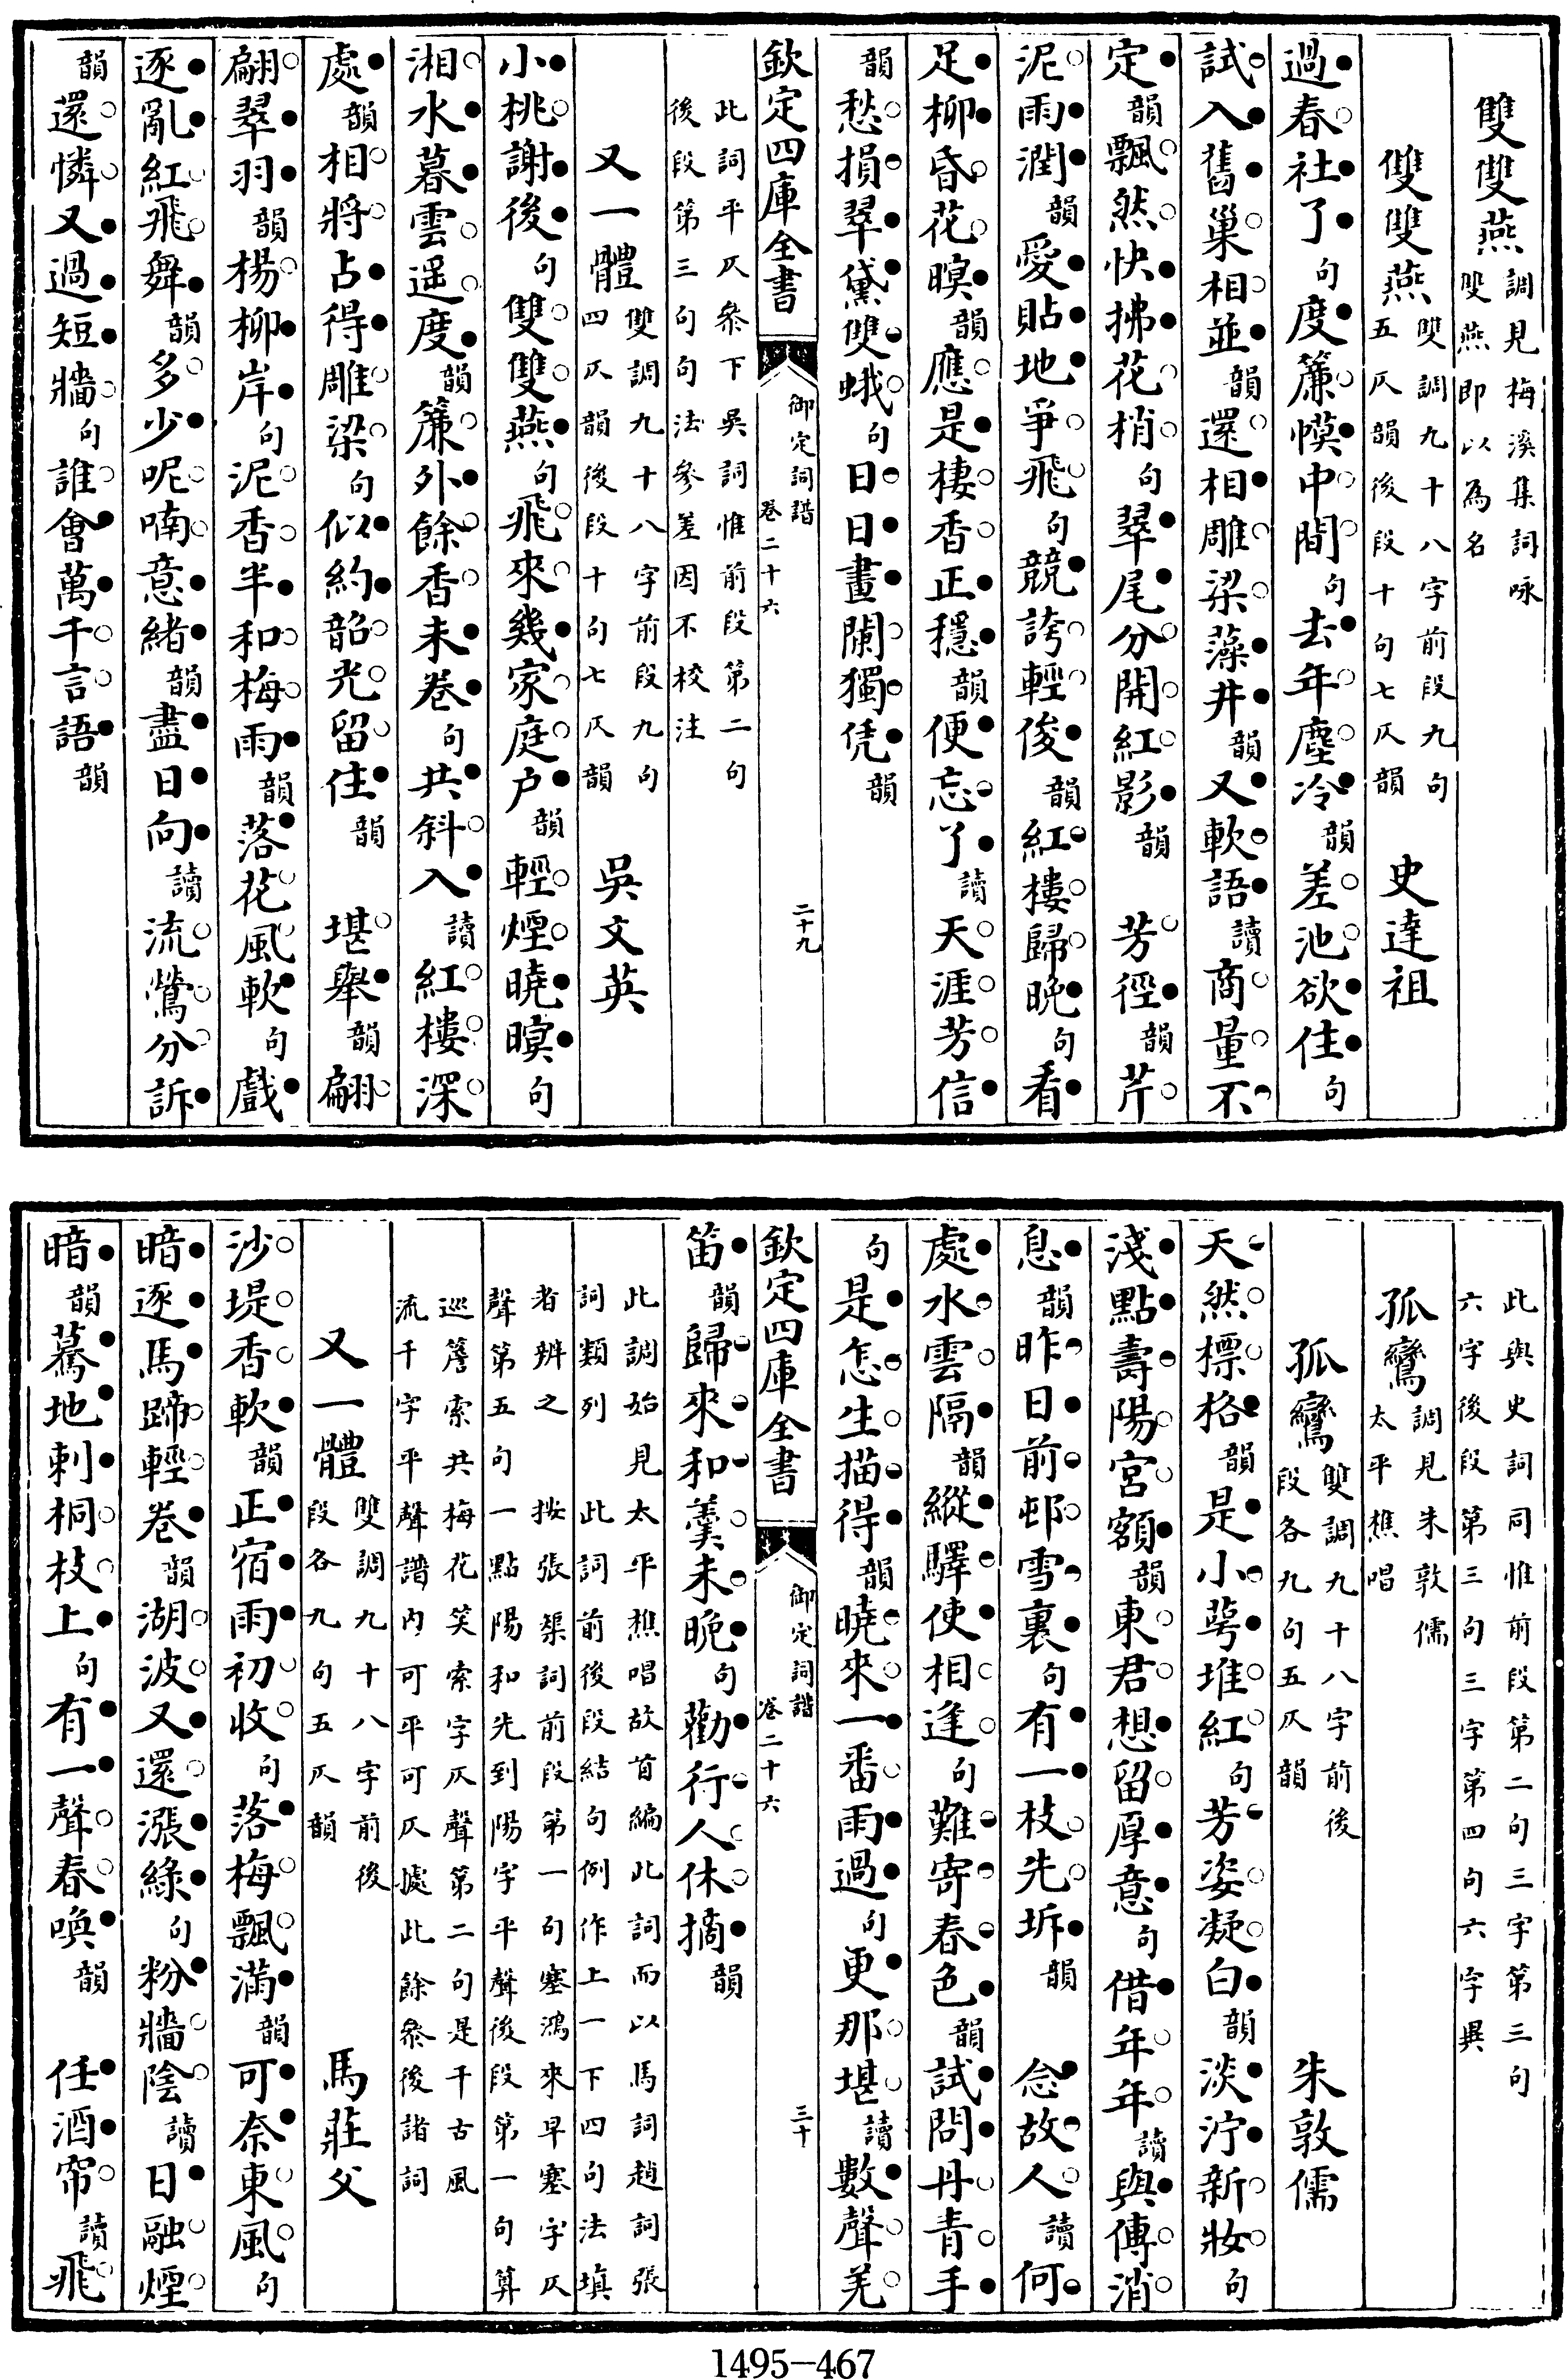 雙雙燕調見梅溪集詞咏雙燕即以為名
雙雙燕雙調九十八字前段九句五仄韻後段十句七仄韻 史達祖
過春社了句度簾幙中間句去年塵冷韻差池欲住句
試入舊巢相並韻還相雕梁藻井韻又軟語讀商量不
定韻飄然快拂花梢句翠尾分開紅影韻 芳徑韻芹
泥雨潤韻愛貼地爭飛句競誇輕俊韻紅樓歸晚句看
足柳昏花暝韻應是棲香正穩韻便忘了讀天涯芳信
韻愁損翠黛雙蛾句日日畫闌獨凭韻
欽定四庫全書 御定詞譜卷二十六 二十九
此詞平仄叅下吳詞惟前段第二句後段第三句句法參差因不校注
又一體雙調九十八字前段九句四仄韻後段十句七仄韻 吳文英
小桃謝後句雙雙燕句飛來幾家庭户韻輕煙曉暝句
湘水暮雲遥度韻簾外餘香未卷句共斜入讀紅樓深
處韻相將占得雕梁句似約韶光留住韻 堪舉韻翩
翩翠羽韻楊柳岸句泥香半和梅雨韻落花風軟句戲
逐亂紅飛舞韻多少呢喃意緒韻盡日向讀流鶯分訴
韻還憐又過短牆句誰會萬千言語韻
此與史詞同惟前段第二句三字第三句六字後段第三句三字第四句六字異
孤鸞調見朱敦儒太平樵唱
孤鸞雙調九十八字前後段各九句五仄韻 朱敦儒
天然標格韻是小萼堆紅句芳姿凝白韻淡泞新妝句
淺點壽陽宮額韻東君想留厚意句借年年讀與傳消
息韻昨日前邨雪裏句有一枝先坼韻 念故人讀何
處水雲隔韻縱驛使相逢句難寄春色韻試問丹青手
句是怎生描得韻曉來一番雨過句更那堪讀數聲羌
欽定四庫全書 御定詞譜卷二十六 三十
笛韻歸來和羹未晚句勸行人休摘韻
此調始見太平樵唱故首編此詞而以馬詞趙詞張詞類列 此詞前後段結句例作上一下四句法填
者辨之 按張榘詞前段第一句塞鴻來早塞字仄聲第五句一點陽和先到陽字平聲後段第一句算
巡簷索共梅花笑索字仄聲第二句是千古風流千字平聲譜內可平可仄據此餘叅後諸詞
又一體雙調九十八字前後段各九句五仄韻 馬莊父
沙堤香軟韻正宿雨初收句落梅飄滿韻可奈東風句
暗逐馬蹄輕卷韻湖波又還漲綠句粉牆陰讀日融煙
暗韻驀地刺桐枝上句有一聲春喚韻 任酒帘讀飛
1495—467